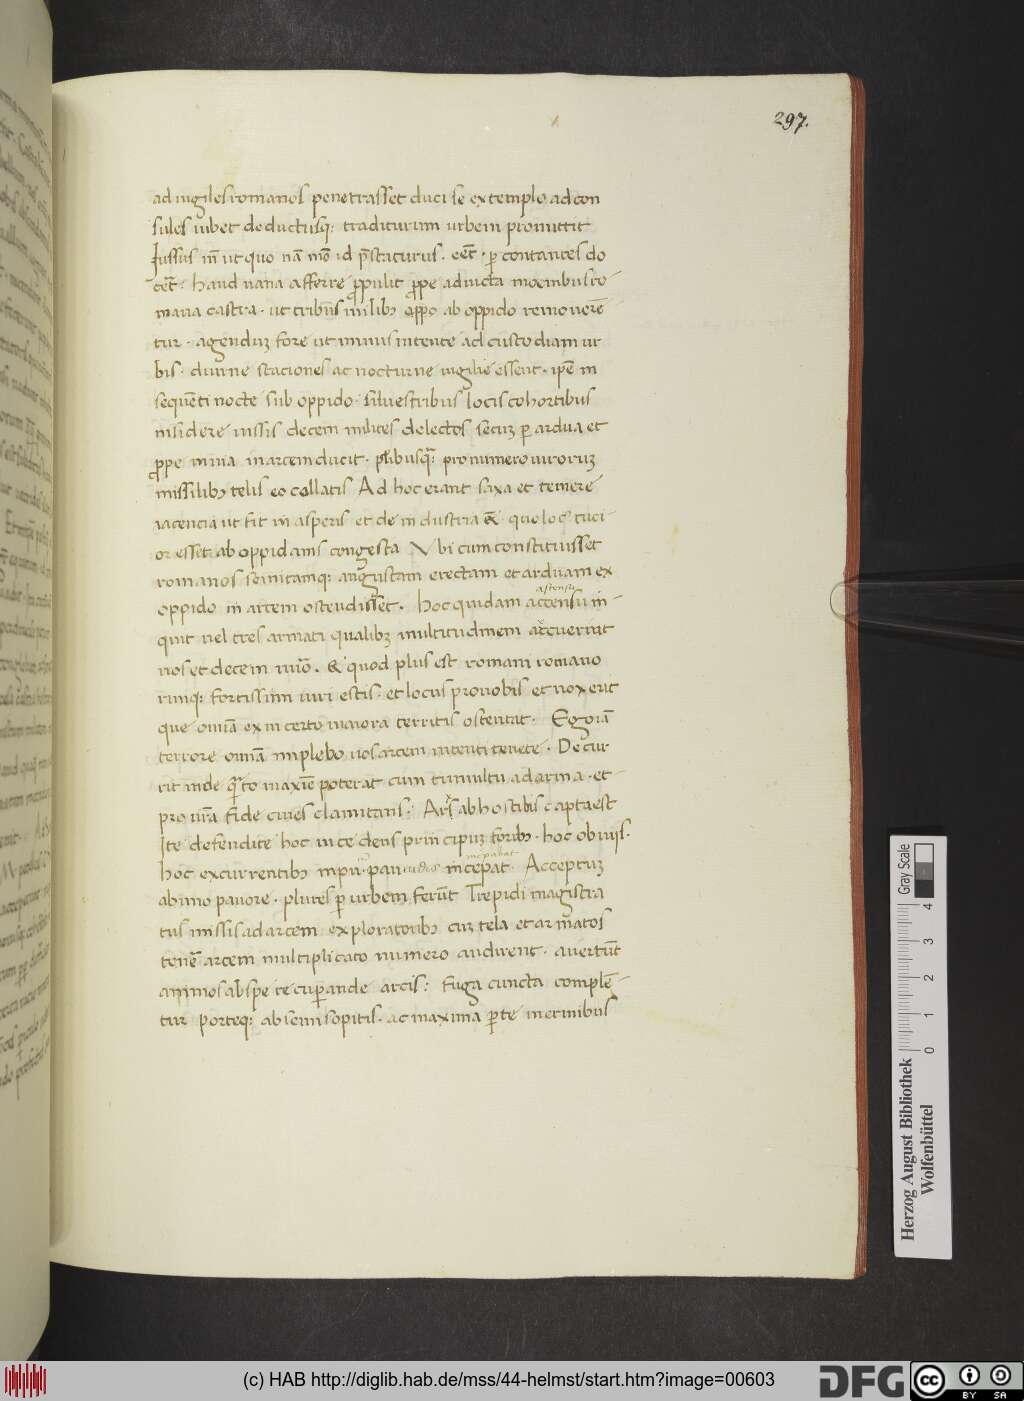 297.
ad uigiles romanos penetrasset duci se extemplo ad con
sules iubet deductusq; traditurum urbem promittit
Jussus īn ut quo nā mō id p̄staturus. eēt. ꝑ contantes do
cēt: haud uana afferre ꝓpulit ꝓpe aduicta moenibus ro
mana castra. ut tribus milibꝫ ab oppido remouerē
tur. agenduꝫ fore ut minus intente ad custodiam ur
bis. diurne staciones ac nocturne uigilie essent. ipē in
sequēti nocte sub oppido. siluestribus locis cohortibus
insidere iussis decem milites delectos secuꝫ ꝑ ardua et
ꝓpe inuia in arcem ducit. plibusq; pro numero uiroruꝫ
missilibꝫ telis eo collatis Ad hoc erant saxa et temere
iacencia ut fit in asperis et de industria eciā quo loc tuci
or esset ab oppidanis congesta Vbi cum constituisset
romanos semitamq; angustam erectam et arduam ex
oppido in arcem ostendisset. hoc quidam accensu in-
astensu
quit uel tres armati qualibꝫ multitudinem arcuerint
uos et decem nūo. & quod plus est romani romano
rumq; fortissimi uiri estis. et locus pro uobis et nox erit
que omīa ex incerto maiora territis ostentat. Ego iā
terrore omīa implebo uos arcem intenti tenete. Decur
rit inde q̄to maxīe poterat cum tumultu ad arma. et
pro urā fide ciues clamitans: Arx ab hostibus capta est
Ite defendite hoc incedens principuꝫ foribꝫ. hoc obuijs.
hoc excurrentibꝫ in pu. pauidis incepat. Acceptuꝫ
increpabat
ab uno pauore. plures ꝑ urbem ferūt Trepidi magistra
tus missis ad arcem exploratoribꝫ cuꝫ tela et armatos
tenē arcem multiplicato numero audirent. auertūt
animos ab spe recuꝑande arcis: fuga cuncta complē-
tur porteq; ab semisopitis. ac maxima ꝑte inermibus
Herzog August Bibliothek
Wolfenbüttel
Gray Scale
0 1 2 3 4
(c) HAB http://diglib.hab.de/mss/44-helmst/start.htm?image=00603
DFG
cc
BY SA